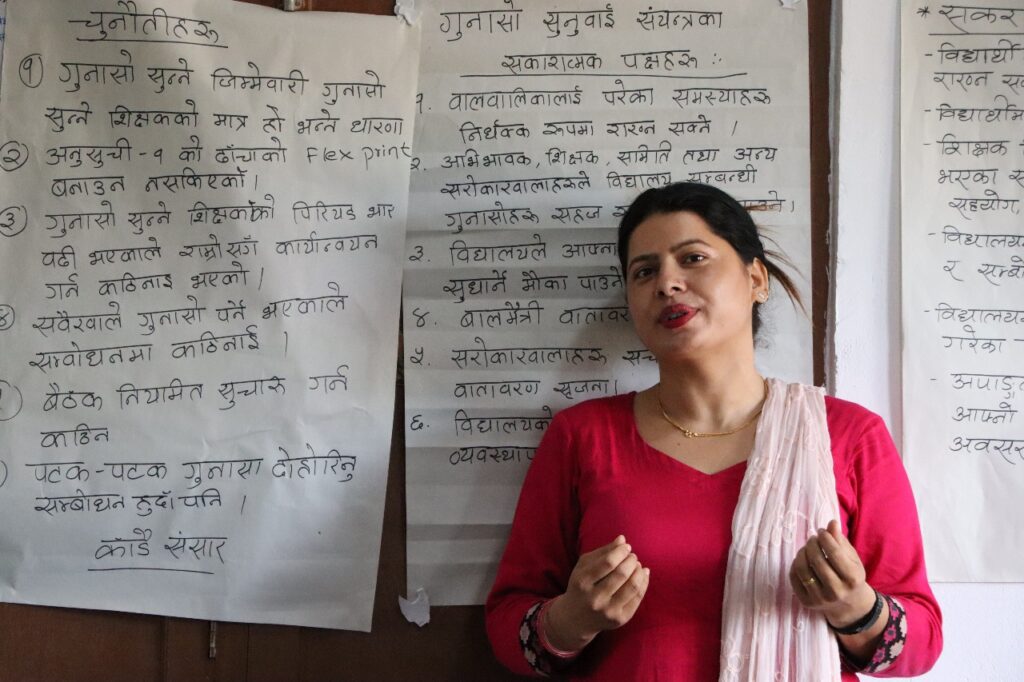 चुनौतीहरू
१ गुनासो सुन्ने जिम्मेवारी गुनासो
सुन्ने शिक्षकको मात्र हो भन्ने धारणा
२ अनुसुची - १ को ढाँचाको Flex print
बनाउन नसकिएको ।
३ गुनासो सुन्ने शिक्षकको पिरियड भार
बढी भएकाले राम्रोसँग कार्यान्वयन
गर्न कठिनाइ भएको ।
४ सवैरवाले गुनासो पर्ने भएकाले
सम्वोधनमा कठिनाई ।
बैठक नियामित सुचारु गर्न
कठिन
पटक-पटक गुनासा दोहोरिनु
सम्बोधन हुदाँ पनि ।
काँडै संसार
गुनासो सुनुवाई संयन्त्रका
सकारात्मक पक्षहरू :-
१. वालवालिकालाई परेका समस्याहरू
निर्धक्क रूपमा राख्न सक्ने ।
२. अभिभावक, शिक्षक, समिति तथा अन्य
सरोकारवालाहरूले विद्यालय सम्बन्धी
गुनासोहरू सहज
३. विद्यालयले आफ्ना
सुधार्ने मौका पाउने
४. बालमैत्री वातावर
५. सरोकारवालाहरू
वातावरण सृजना ।
६. विद्यालयको
व्यवस्थाप
* सकार
- विद्यार्थी
राख्न
- विद्यार्थीम
- शिक्षक
भएका
सहयोग,
- विद्यालय
र सम्बो
- विद्यालय
गरेका
- अपाङ्ग
आफ्नो
अवसर